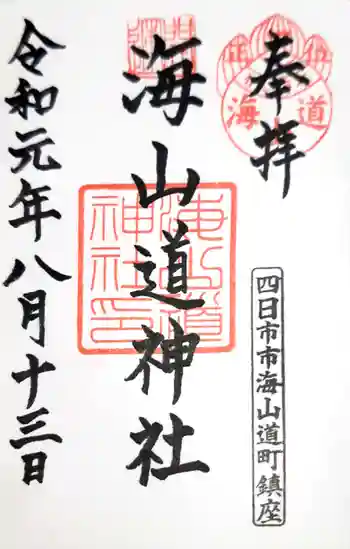 奉拝
海山道
四日市市海山道町鎮座
海山道神社
海山道神社印
令和元年八月十三日